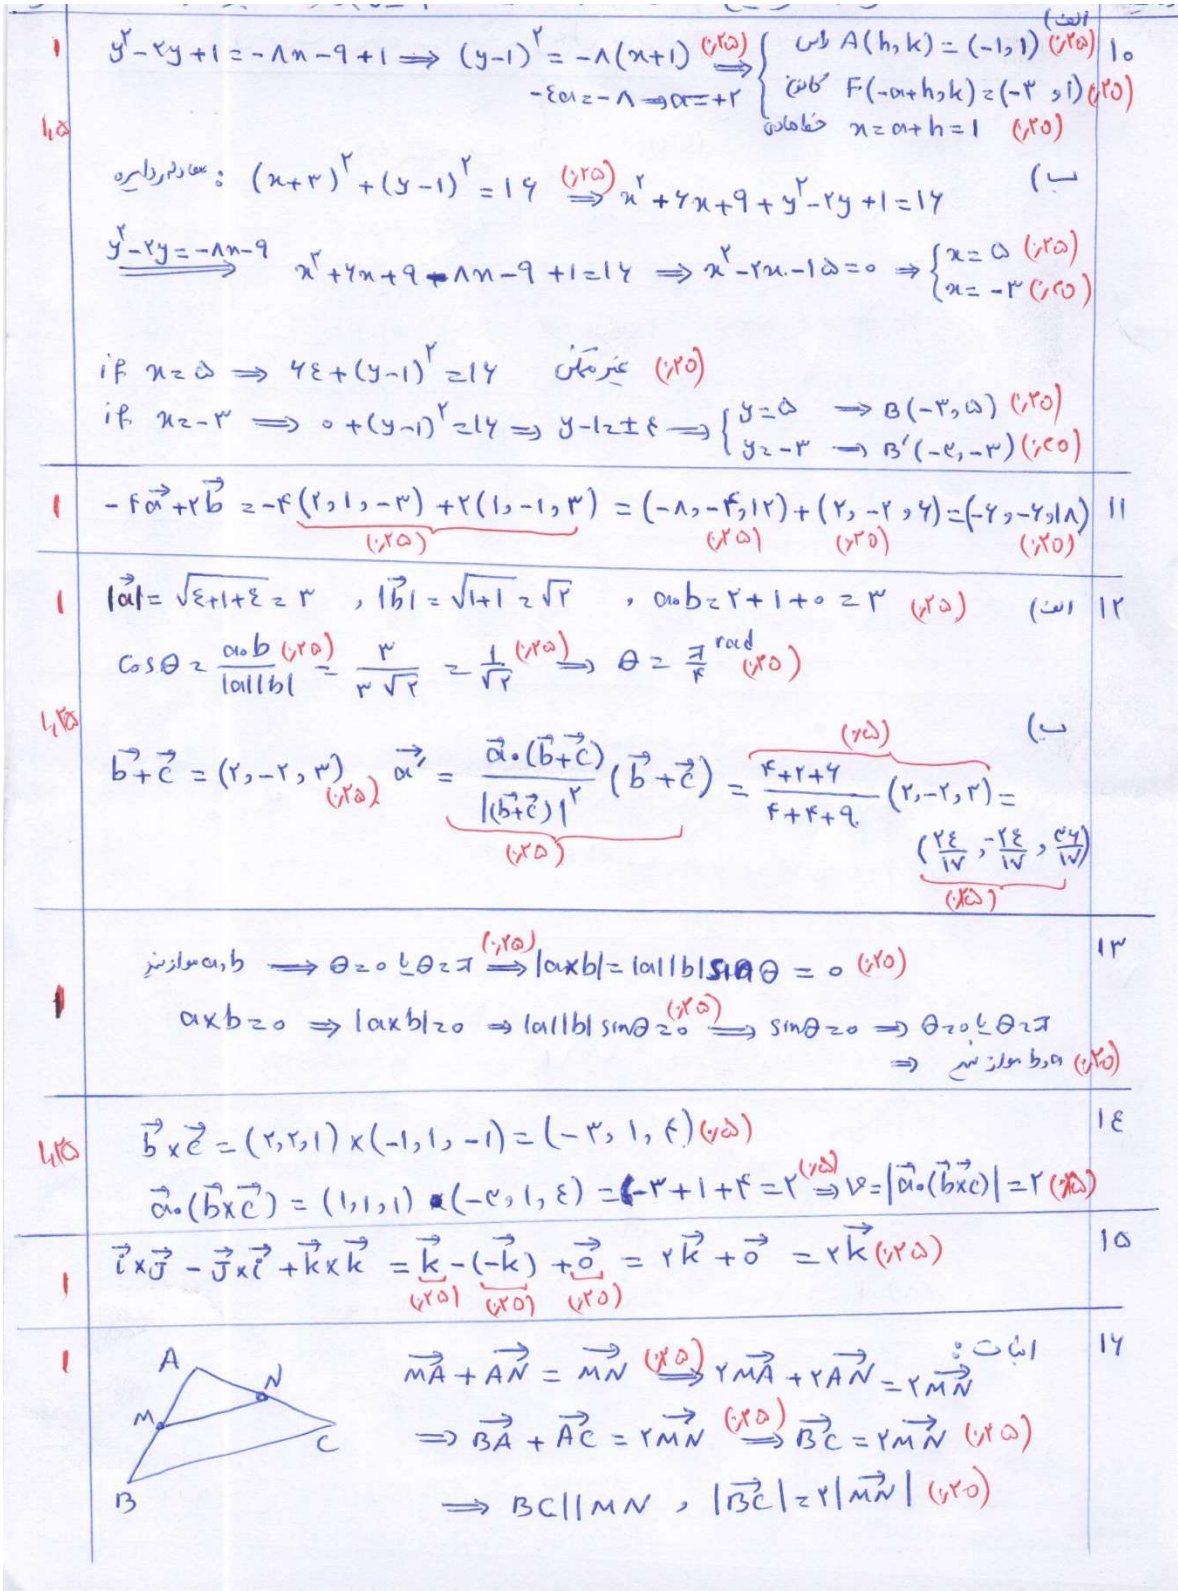 ۱۰ الف)
۱ y² - ۲y + ۱ = -۸x - ۹ + ۱ ⟹ (y-۱)² = -۸(x+۱) (۰٫۲۵) ⟹ { رأس A(h,k) = (-۱,۱) (۰٫۲۵)
-۴a = -۸ ⟹ a = +۲ کانون F(-a+h,k) = (-۳ , ۱) (۰٫۲۵)
خط هادی x = a+h = ۱ (۰٫۲۵)
۱٫۵
ب) معادله دایره : (x+۳)² + (y-۱)² = ۱۶ (۰٫۲۵) ⟹ x² + ۶x + ۹ + y² - ۲y + ۱ = ۱۶
y² - ۲y = -۸x - ۹ ⟹ x² + ۶x + ۹ - ۸x - ۹ + ۱ = ۱۶ ⟹ x² - ۲x - ۱۵ = ۰ ⟹ { x = ۵ (۰٫۲۵)
x = -۳ (۰٫۲۵)
if x = ۵ ⟹ ۶۴ + (y-۱)² = ۱۶ غیر ممکن (۰٫۲۵)
if x = -۳ ⟹ ۰ + (y-۱)² = ۱۶ ⟹ y-۱ = ±۴ ⟹ { y = ۵ ⟶ B(-۳,۵) (۰٫۲۵)
y = -۳ ⟶ B'(-۳,-۳) (۰٫۲۵)
۱۱ ۱ -۴a⃗ + ۲b⃗ = -۴(۲,۱,-۳) + ۲(۱,-۱,۳) = (-۸,-۴,۱۲) + (۲,-۲,۶) = (-۶,-۶,۱۸)
(۰٫۲۵) (۰٫۲۵) (۰٫۲۵) (۰٫۲۵)
۱۲ الف) ۱ |a⃗| = √۴+۱+۴ = ۳ , |b⃗| = √۱+۱ = √۲ , a∘b = ۲+۱+۰ = ۳ (۰٫۲۵)
cosθ = a∘b/|a||b| (۰٫۲۵) = ۳/۳√۲ = ۱/√۲ (۰٫۲۵) ⟹ θ = π/۴ rad (۰٫۲۵)
۱٫۲۵
ب) (۰٫۵)
b⃗ + c⃗ = (۲,-۲,۳) (۰٫۲۵) a⃗' = a⃗∘(b⃗+c⃗)/|(b⃗+c⃗)|² (b⃗+c⃗) = ۴+۲+۶/۴+۴+۹ (۲,-۲,۳) =
(۰٫۲۵) (۲۴/۱۷ , -۲۴/۱۷ , ۳۶/۱۷)
(۰٫۲۵)
۱۳ a,b موازیند ⟹ θ = ۰ یا θ = π (۰٫۲۵) ⟹ |a×b| = |a||b| sinθ = ۰ (۰٫۲۵)
۱ a×b = ۰ ⟹ |a×b| = ۰ ⟹ |a||b| sinθ = ۰ (۰٫۲۵) ⟹ sinθ = ۰ ⟹ θ = ۰ یا θ = π
⟹ a,b موازیند (۰٫۲۵)
۱۴ ۱٫۲۵ b⃗×c⃗ = (۲,۲,۱)×(-۱,۱,-۱) = (-۳,۱,۴) (۰٫۵)
a⃗∘(b⃗×c⃗) = (۱,۱,۱)•(-۳,۱,۴) = -۳+۱+۴ = ۲ (۰٫۵) ⟹ V = |a⃗∘(b⃗×c⃗)| = ۲ (۰٫۲۵)
۱۵ i⃗×j⃗ - j⃗×i⃗ + k⃗×k⃗ = k⃗ - (-k⃗) + o⃗ = ۲k⃗ + o⃗ = ۲k⃗ (۰٫۲۵)
۱ (۰٫۲۵) (۰٫۲۵) (۰٫۲۵)
۱۶ اثبات :
۱ MA⃗ + AN⃗ = MN⃗ (۰٫۲۵) ⟹ ۲MA⃗ + ۲AN⃗ = ۲MN⃗
⟹ BA⃗ + AC⃗ = ۲MN⃗ (۰٫۲۵) ⟹ BC⃗ = ۲MN⃗ (۰٫۲۵)
⟹ BC||MN , |BC⃗| = ۲|MN⃗| (۰٫۲۵)
A
N
M
C
B